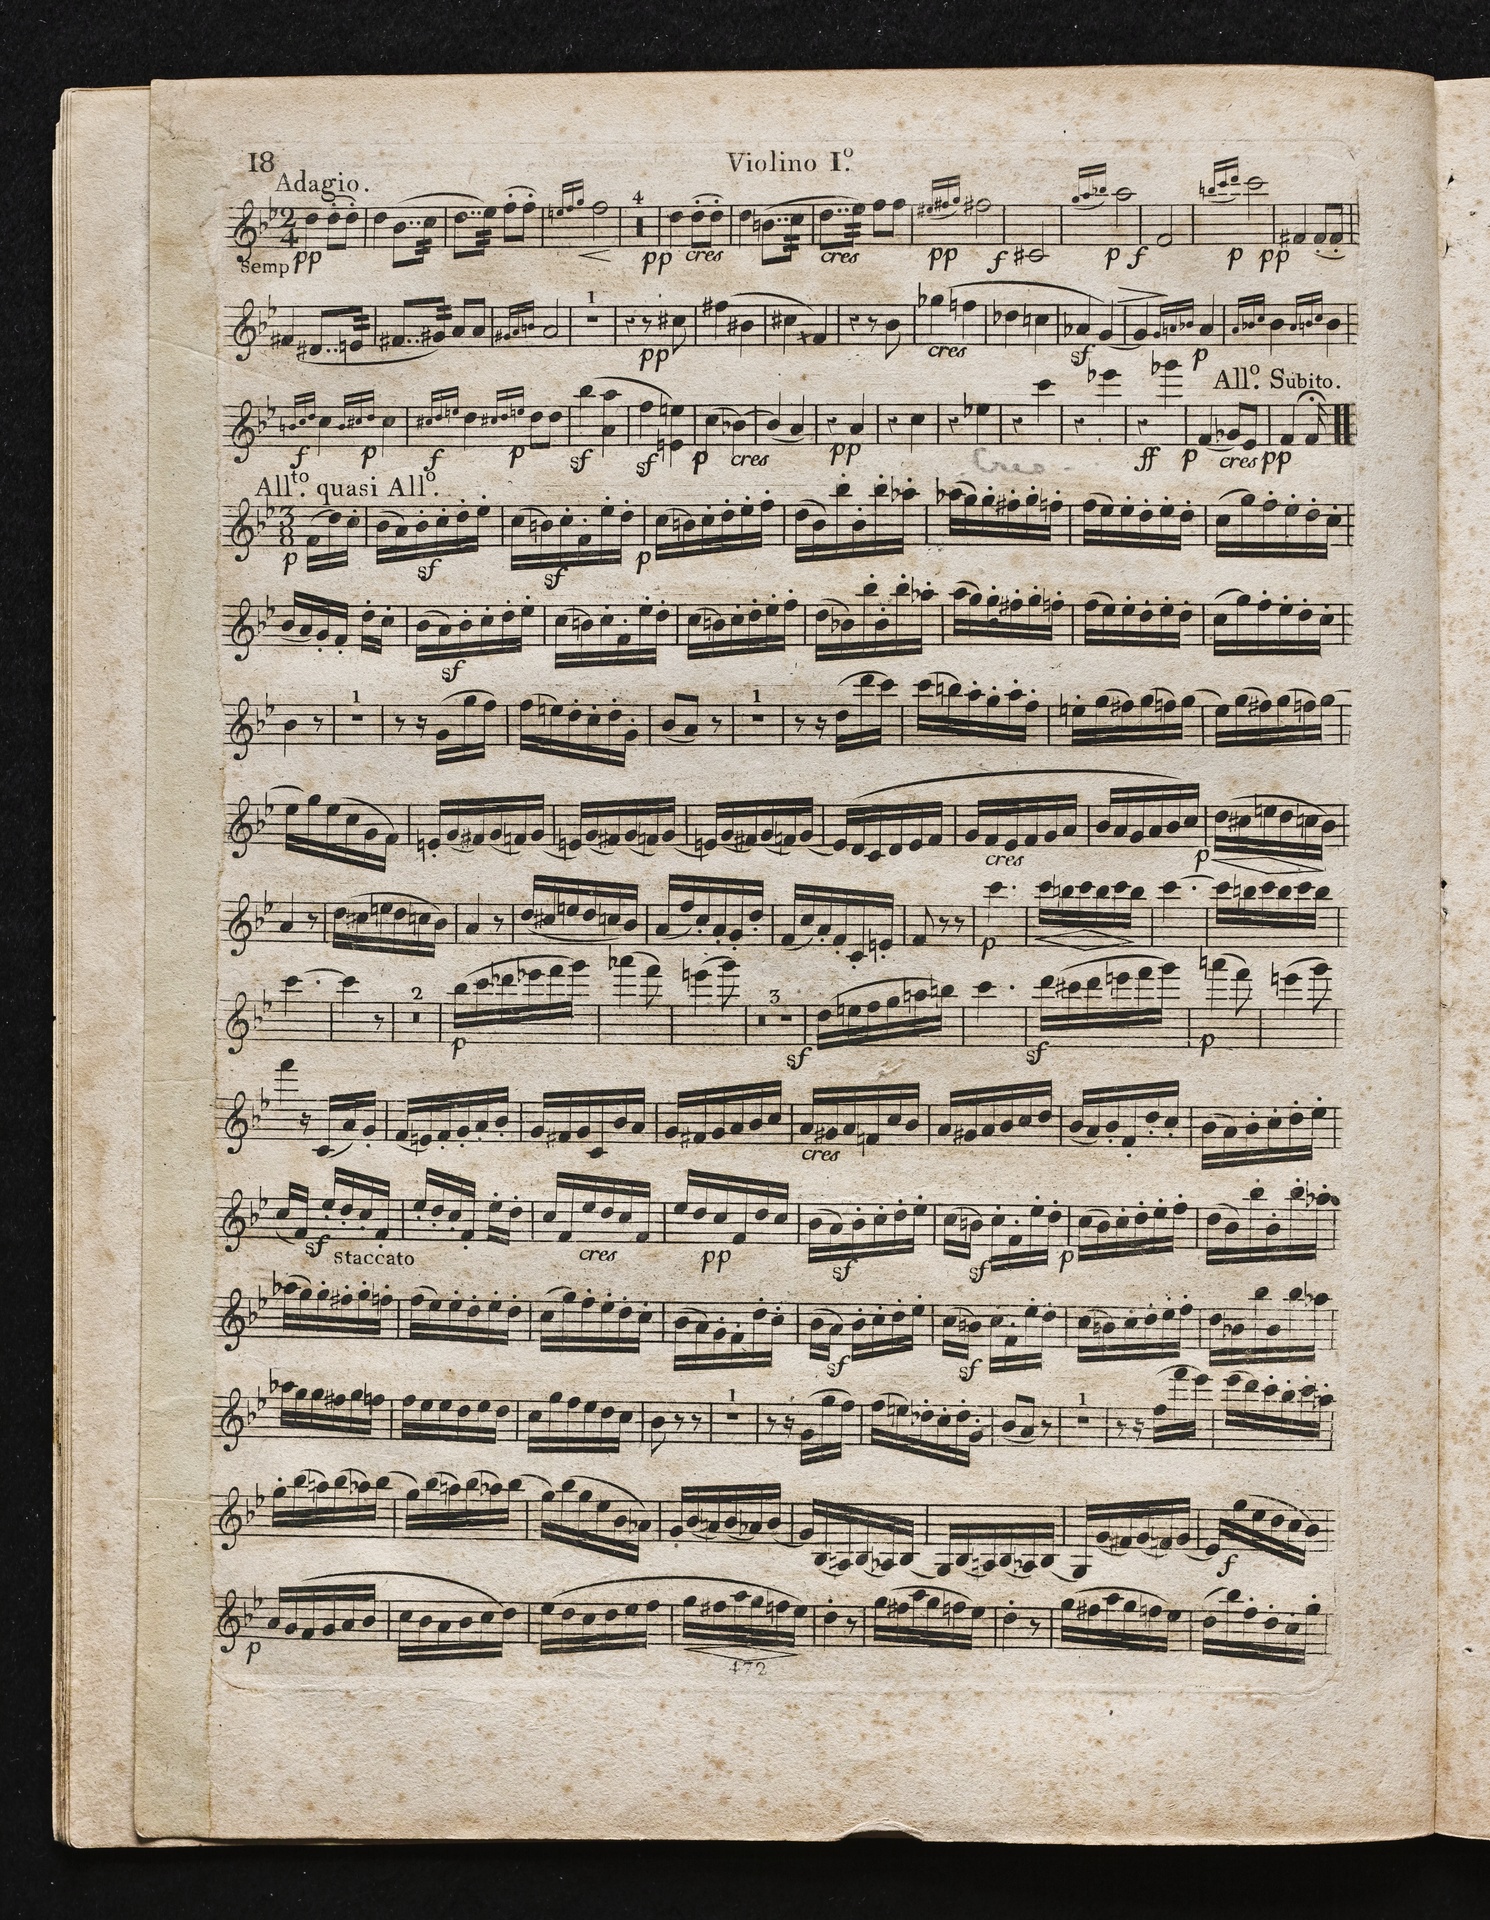 18
Violino Iº.
Adagio.
2 4
4
semp pp pp cres cres pp f p f p pp
1
pp cres sf p
Allº. Subito.
f p f p sf sf p cres pp ff p cres pp
Cres
Allto. quasi Allº.
3 8
p sf sf p
sf
1 1
cres p
p
2 3
p sf sf p
cres
sf staccato cres pp sf sf p
sf sf
1 1
f
p
472